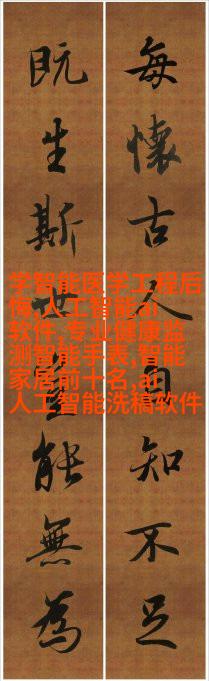 每懷古人自知不足
既生斯世能無為
学智能医学工程后
悔,人工智能ai
软件,专业健康监
测智能手表,智能
家居前十名,ai
人工智能洗稿软件